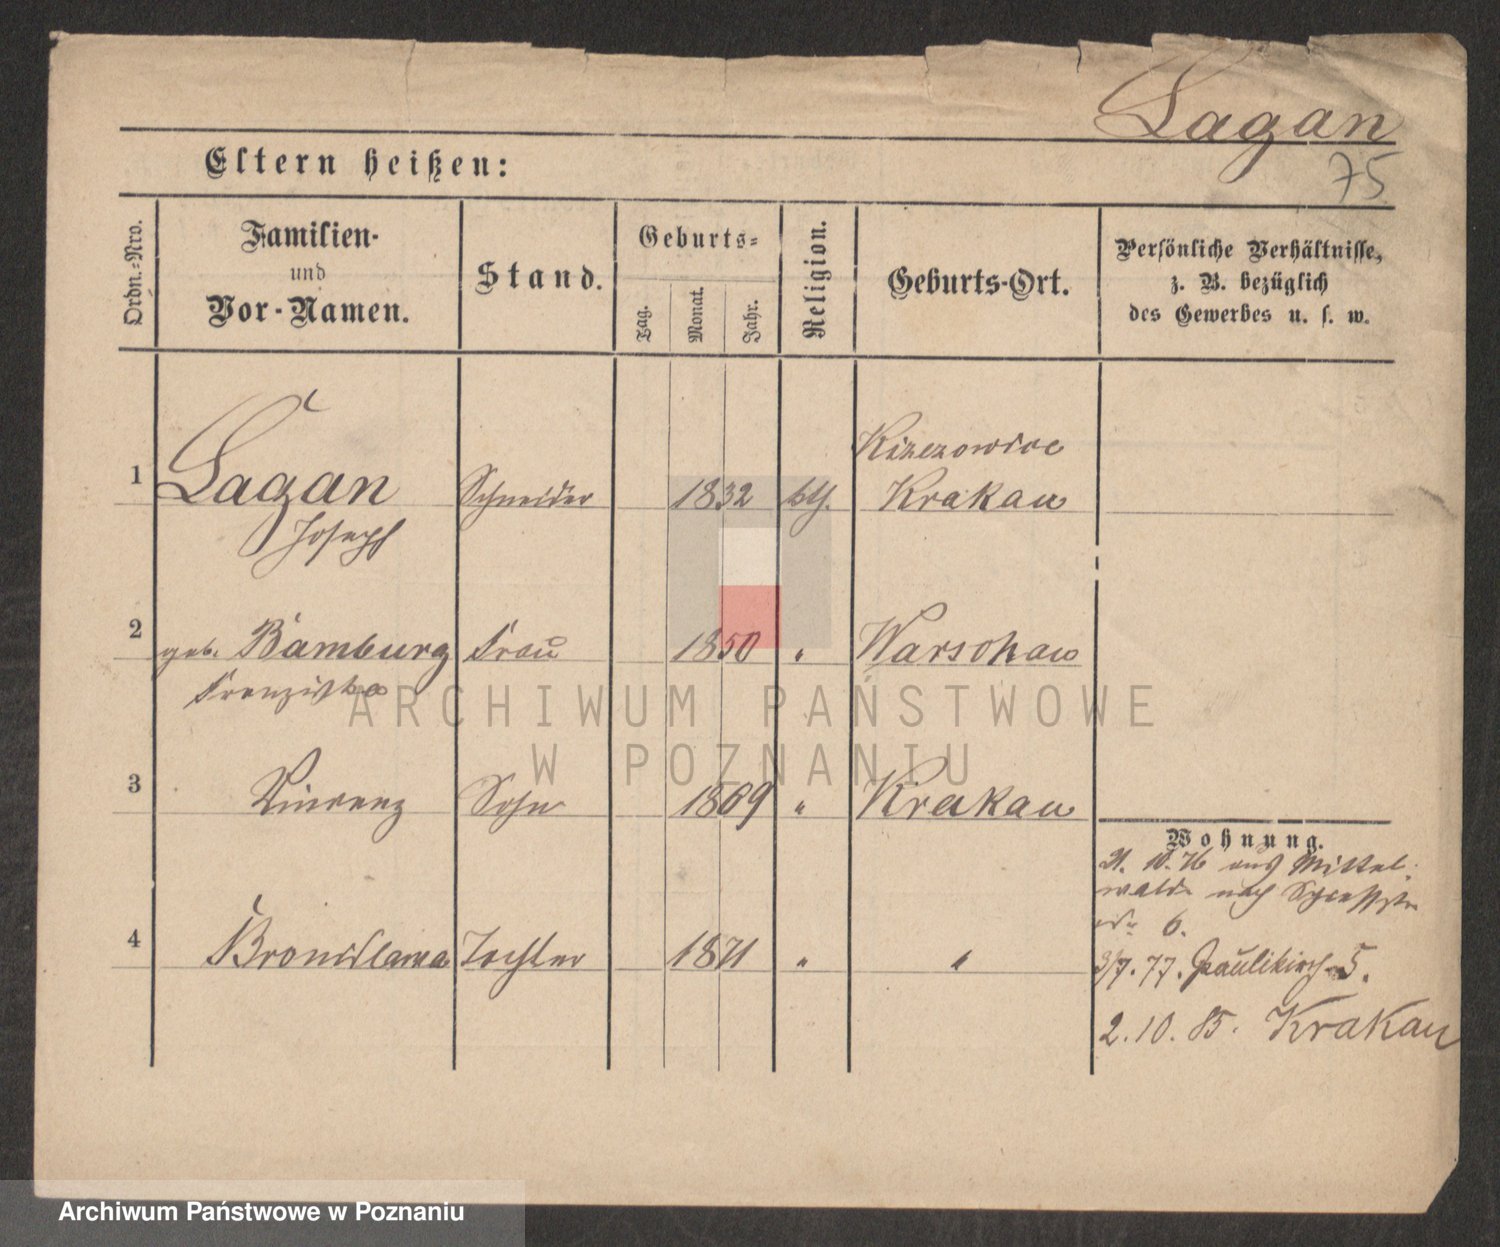 Lagan
75
Eltern heißen:
Ordn.-Nro.
Familien-
und
Vor-Namen.
Stand.
Geburts-
Tag.
Monat.
Jahr.
Religion.
Geburts-Ort.
Persönliche Verhältnisse,
z. B. bezüglich
des Gewerbes u. s. w.
1
Lagan
Joseph
Schneider
1832
kth.
Krakau
2
geb. Bamburg
Franziska
Frau
1850
"
Warschau
3
Vincenz
Sohn
1869
"
Krakau
4
Bronislawa
Tochter
1871
"
"
Wohnung.
21. 10. 76 aus Mittel-
walde nach
6.
3/7. 77. Paulikirch 5.
2. 10. 85. Krakau
ARCHIWUM PAŃSTWOWE
W POZNANIU
Archiwum Państwowe w Poznaniu